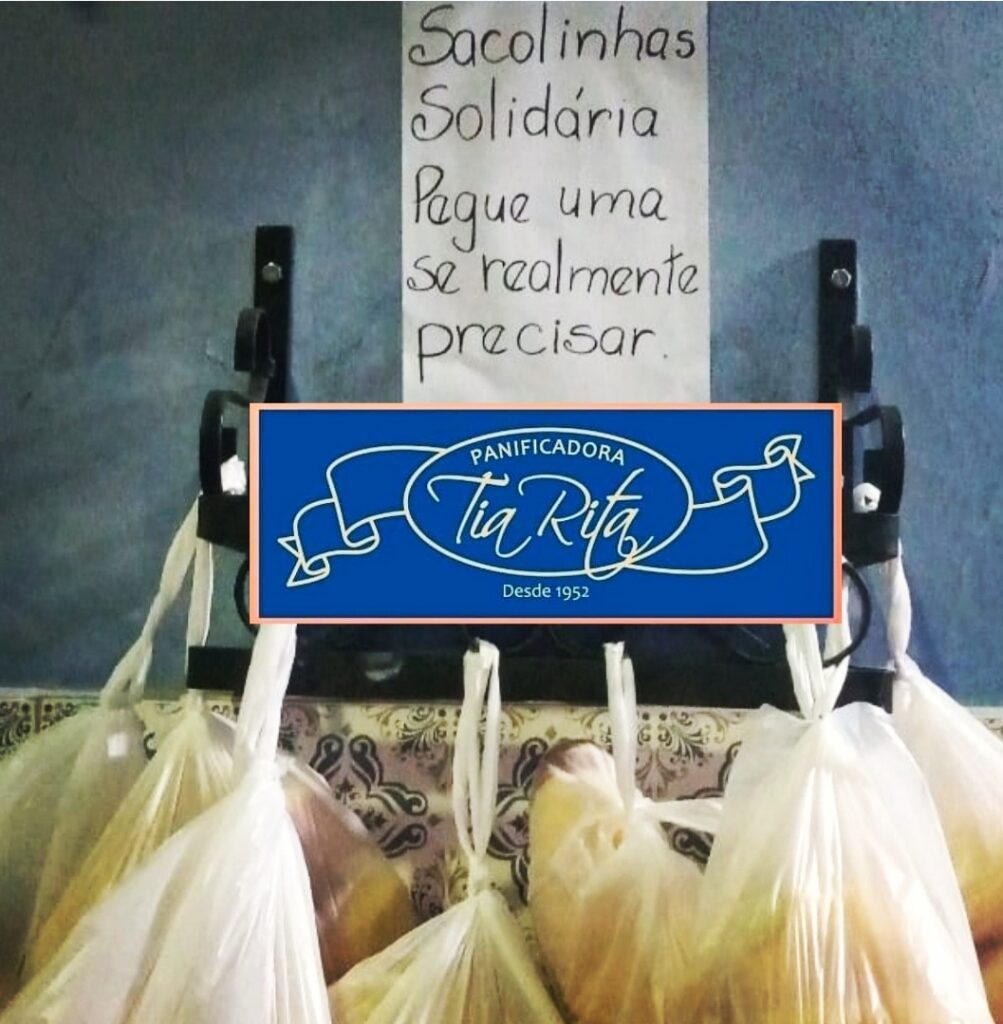 Sacolinhas
Solidária
Pegue uma
se realmente
precisar.
PANIFICADORA
Tia Rita
Desde 1952